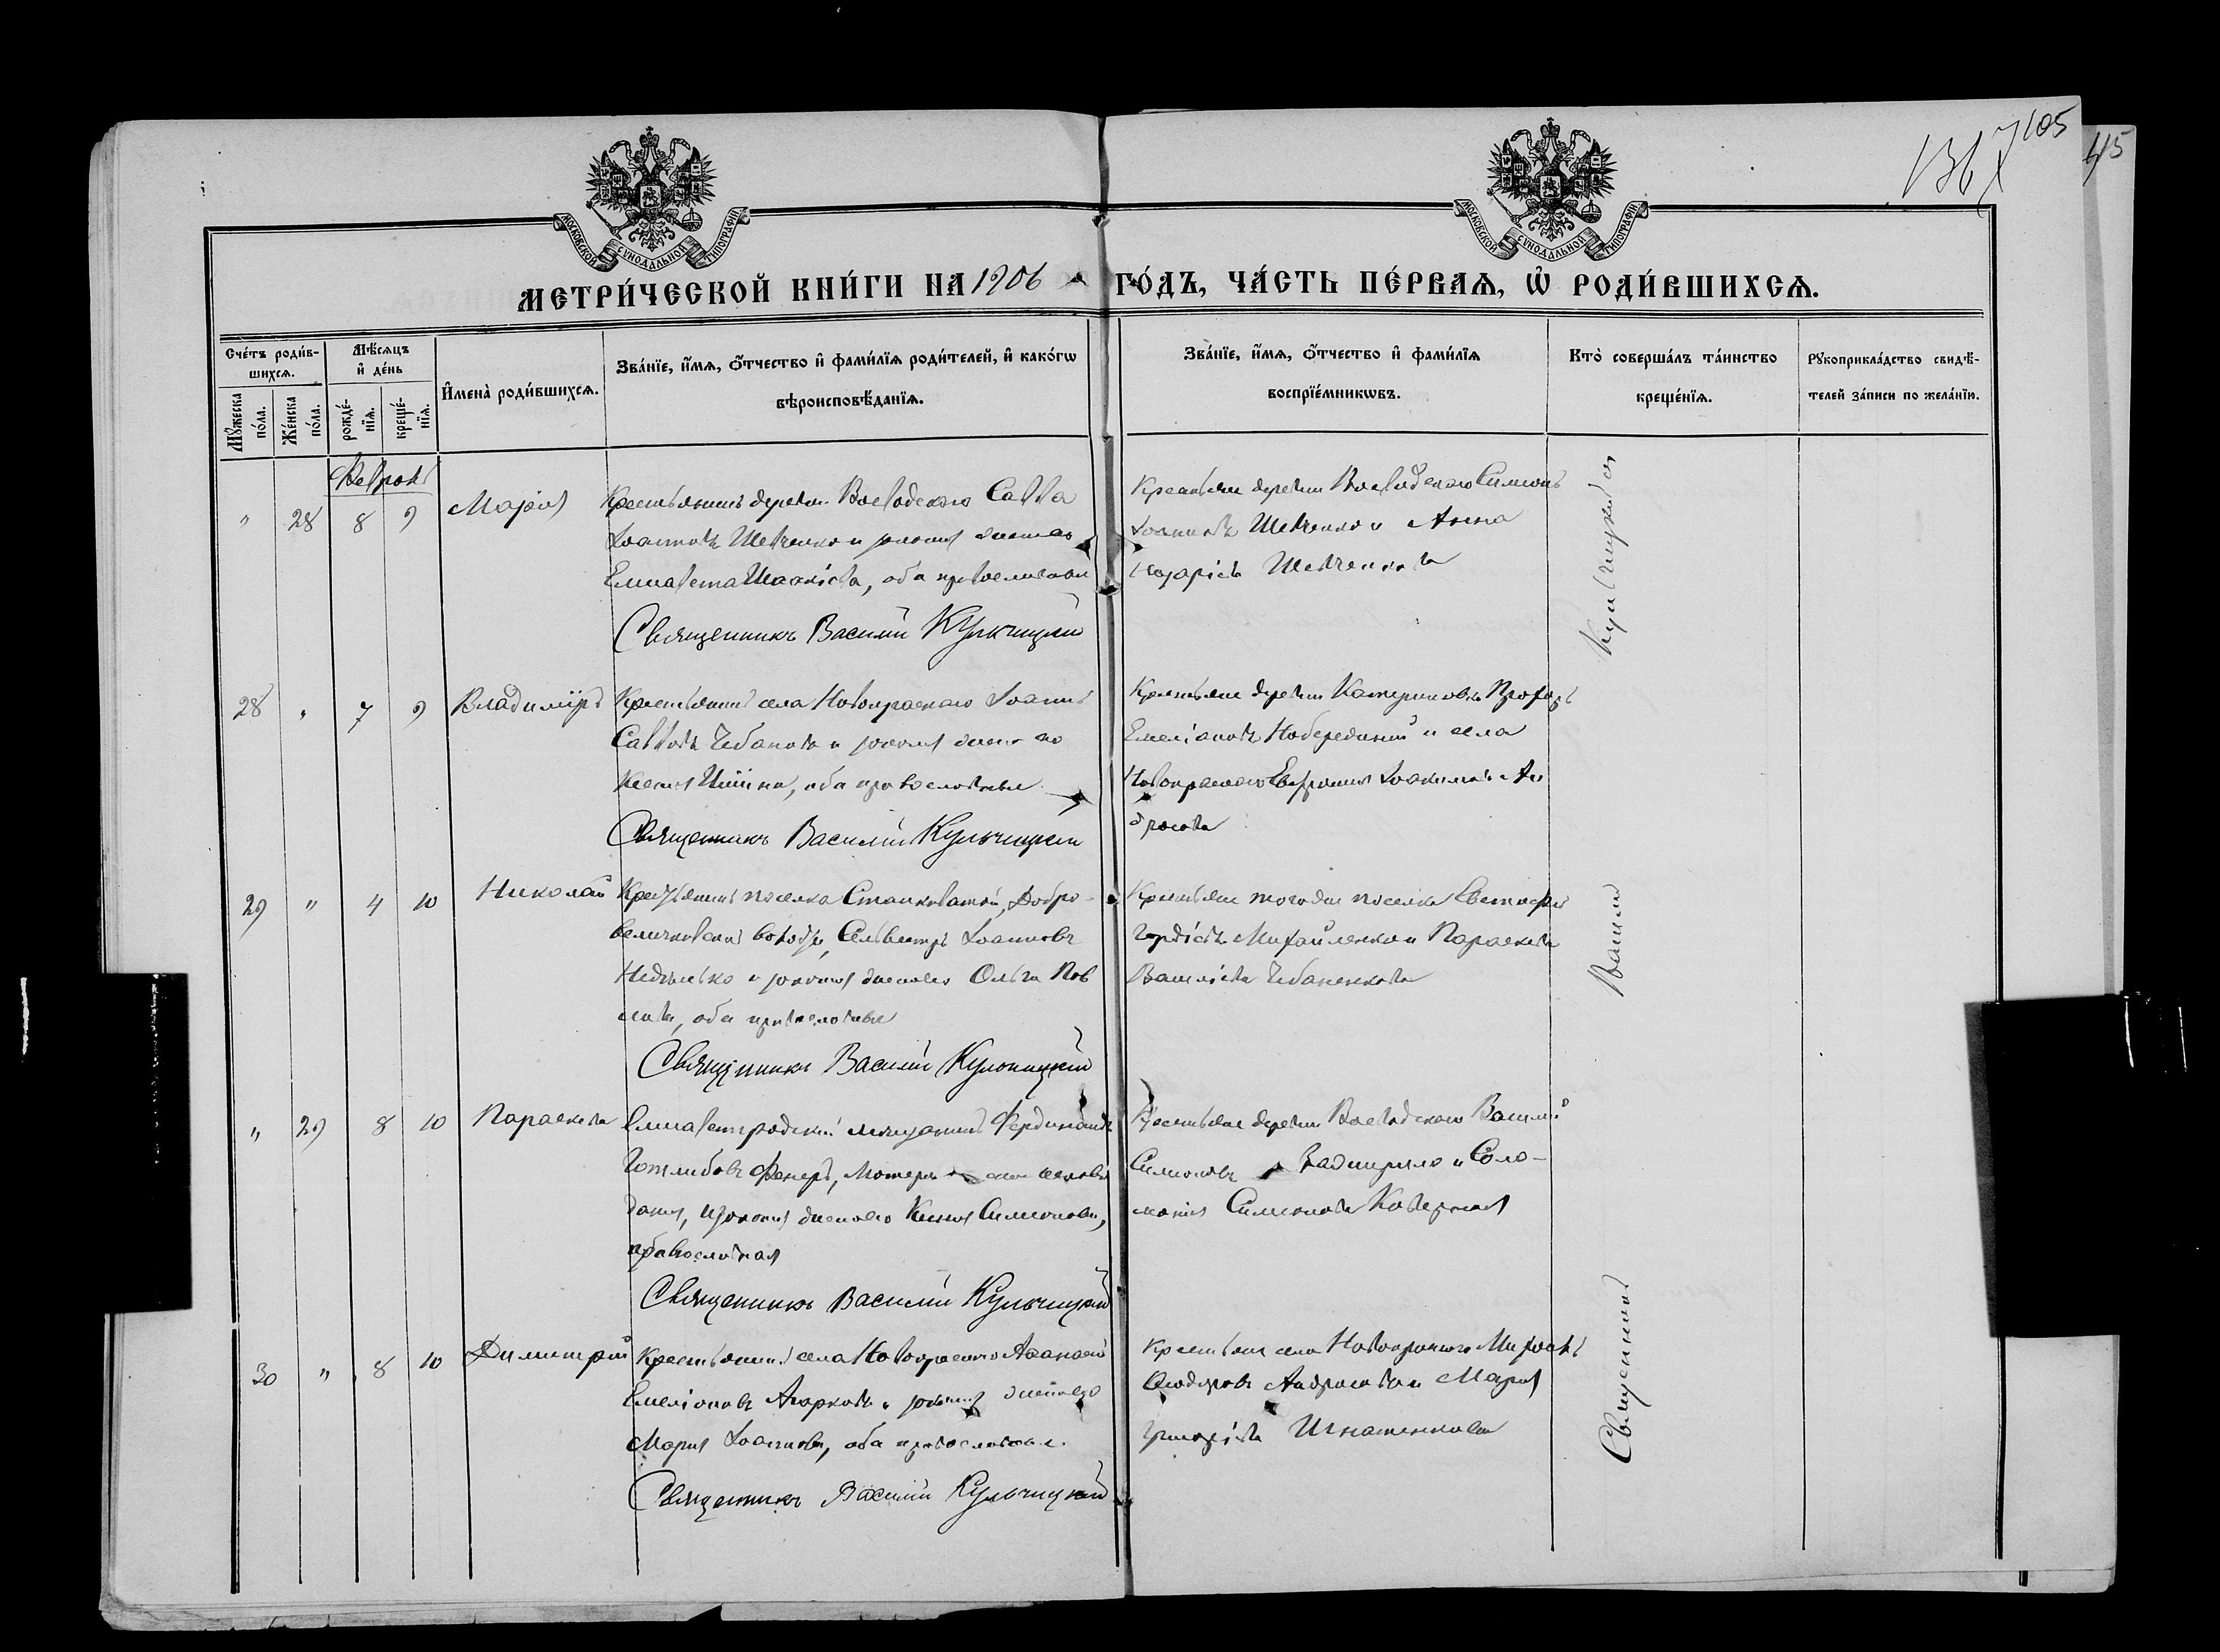 136 105
45
МОСКОВСКОЙ СѴНОДАЛЬНОЙ ТИПОГРАФІИ
МОСКОВСКОЙ СѴНОДАЛЬНОЙ ТИПОГРАФІИ
МЕТРИ́ЧЕСКОЙ КНИ́ГИ НА 1906 ГО́ДЪ, ЧА́СТЬ ПЕ́РВАѦ, Ѡ҆ РОДИ́ВШИХСѦ.
Сче́тъ роди́в-
шихсѧ.
Мꙋ́жеска по́ла.
Же́нска по́ла.
Мѣ́сѧцъ и҆ де́нь
рожде́-
нїѧ.
креще́-
нїѧ.
И҆мена̀ роди́вшихсѧ.
Зва́нїе, и҆́мѧ, ѻ҆́тчество и҆ фами́лїѧ роди́телей, и҆ како́гѡ
вѣроисповѣ́данїѧ.
Зва́нїе, и҆́мѧ, ѻ҆́тчество и҆ фами́лїѧ
воспрїе́мникѡвъ.
Кто̀ соверша́лъ та́инство
креще́нїѧ.
Рꙋкоприкла́дство свидѣ́-
телей за́писи по жела́нїю.
Февраль
" 28 8 9 Марія
Крестьянинъ деревни Воеводскаго Савва
Іоанновъ Шевченко и законная жена его
Елисавета Исакіева, оба православные
Священникъ Василій Кульчицкій
Крестьяне деревни Воеводскаго Симеонъ
Іоанновъ Шевченко и Анна
Назаріева Шевченкова
28 " 7 9 Владиміръ
Крестьянинъ села Новокраснаго Іоаннъ
Саввовъ Чебановъ и законная жена его
Ксенія, оба православные
Священникъ Василій Кульчицкій
Крестьяне деревни Катериновки Прохоръ
Емеліановъ и села
Новокраснаго Евфросинія Іоакимова Ан
дросова
29 " 4 10 Николай
Крестьянинъ поселка Станковатой, Добро-
величковской волости, Сильвестръ Іоанновъ
Недилько и законная жена его Ольга Пав
лова, оба православные
Священникъ Василій Кульчицкій
Крестьяне того же поселка Евстафій
Гордіевъ Михайленко и Параскева
Василіева Чебаненкова
" 29 8 10 Параскева
Елисаветградскій мещанинъ Фердинандъ
Готлибовъ, Лютеранскаго исповѣ
данія, и законная жена его Ксенія Симеонова,
православная
Священникъ Василій Кульчицкій
Крестьяне деревни Воеводскаго Василій
Симеоновъ и Соло-
монія Симеонова
30 " 8 10 Димитрій
Крестьянинъ села Новокраснаго Аѳанасій
Емеліановъ и законная жена его
Марія Іоаннова, оба православные.
Священникъ Василій Кульчицкій
Крестьяне села Новокраснаго
Ѳеодоровъ Андросовъ и Марія
Григоріева Игнатенкова
Священникъ Василій Кульчицкій